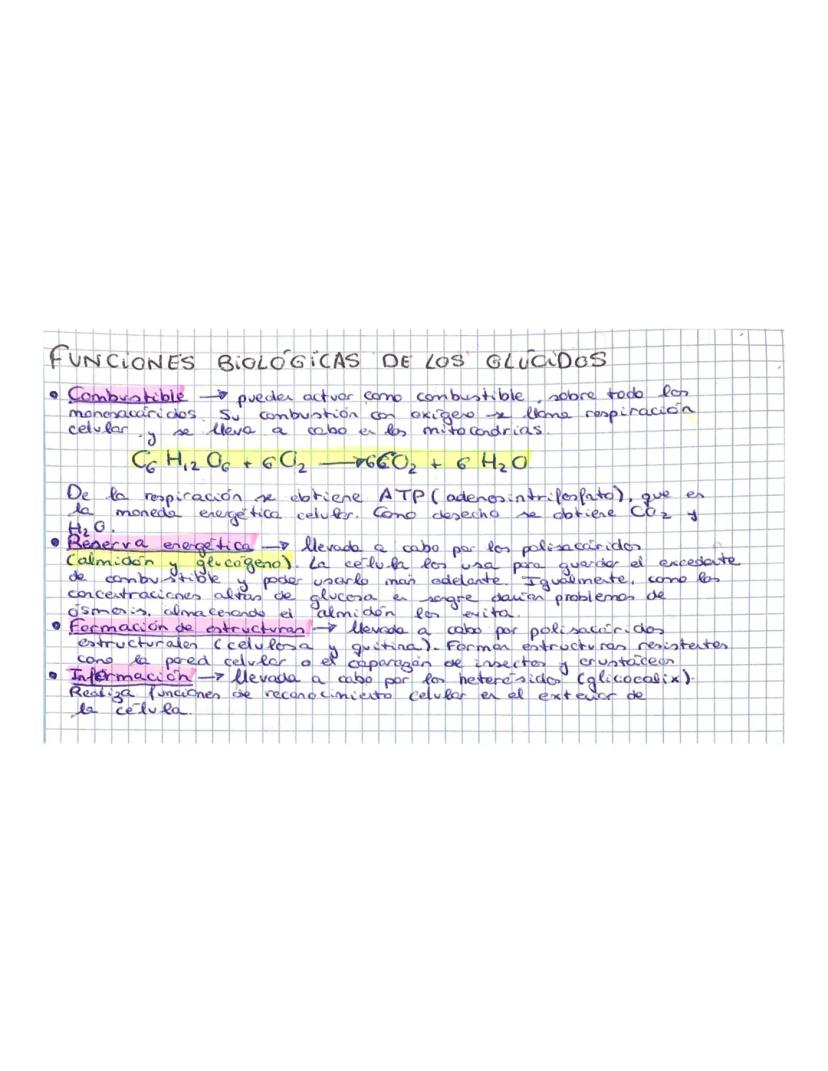 FUNCIONES BIOLÓGICAS DE LOS GLÚCIDOS
• Combustible → pueden actuar como combustible, sobre todo los
monosacáridos. Su combustión con oxígeno se llama respiración
celular, y se lleva a cabo en las mitocondrias.
C6 H12 O6 + 6 O2 → 6CO2 + 6 H2O
De la respiración se obtiene ATP (adenosintrifosfato), que es
la moneda energética celular. Como desecho se obtiene CO2 y
H2O.
• Reserva energética → llevada a cabo por los polisacáridos
(almidón y glucógeno). La célula los usa para guardar el excedente
de combustible y poder usarlo más adelante. Igualmente, como las
concentraciones altas de glucosa en sangre darían problemas de
ósmosis, almacenando el almidón los evita.
• Formación de estructuras → llevada a cabo por polisacáridos
estructurales (celulosa y quitina). Forman estructuras resistentes
como la pared celular o el caparazón de insectos y crustáceos.
• Información → llevada a cabo por los heterósidos (glicocalix).
Realiza funciones de reconocimiento celular en el exterior de
la célula.